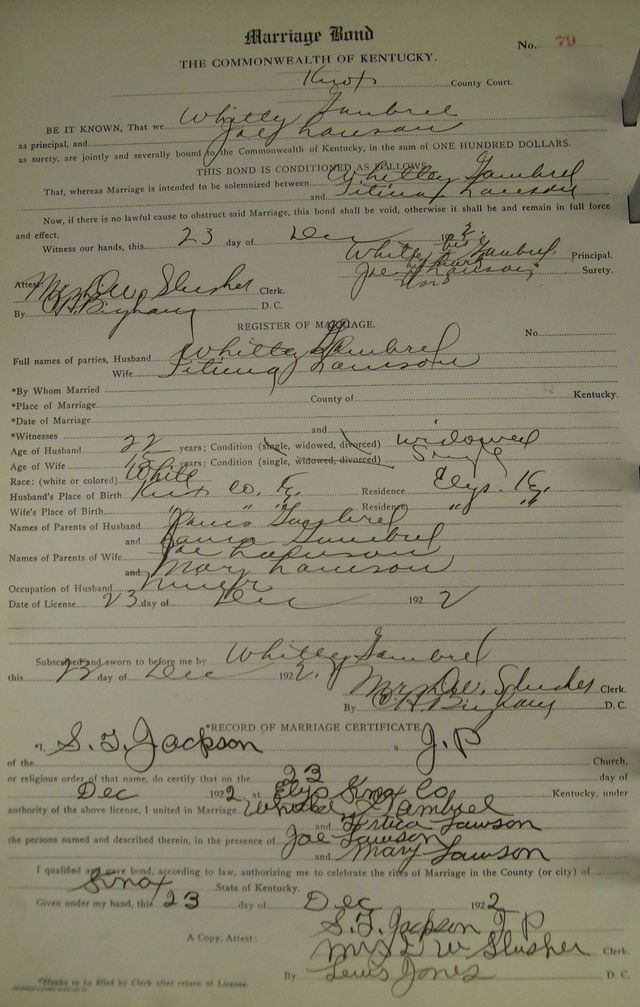 Marriage Bond
No. 79
THE COMMONWEALTH OF KENTUCKY.
Knox County Court.
BE IT KNOWN, That we Whitley Gambrel
as principal, and Joe Lawson
as surety, are jointly and severally bound to the Commonwealth of Kentucky, in the sum of ONE HUNDRED DOLLARS.
THIS BOND IS CONDITIONED AS FOLLOWS:
That, whereas Marriage is intended to be solemnized between Whitley Gambrel
and Lawson
Now, if there is no lawful cause to obstruct said Marriage, this bond shall be void, otherwise it shall be and remain in full force
and effect.
Witness our hands, this 23 day of Dec 192
Whitley Gambrel Principal.
his
Joe x Lawson Surety.
mark
Attest: Mrs D. W. Slusher Clerk.
By Bingham D. C.
REGISTER OF MARRIAGE.
No.
Full names of parties, Husband Whitley Gambrel
Wife Lawson
*By Whom Married
*Place of Marriage County of Kentucky.
*Date of Marriage
*Witnesses and
Age of Husband 22 years; Condition (single, widowed, divorced) widowed
Age of Wife years; Condition (single, widowed, divorced) Single
Race: (white or colored) White
Husband's Place of Birth Knox Co. Ky. Residence Elys. Ky.
Wife's Place of Birth " " " Residence " "
Names of Parents of Husband Gambrel
and Gambrel
Names of Parents of Wife Joe Lawson
and Mary Lawson
Occupation of Husband Miner
Date of License 23 day of Dec 1922
Subscribed and sworn to before me by Whitley Gambrel
this 23 day of Dec 1922.
Mrs D. W. Slusher Clerk.
By Bingham D. C.
*RECORD OF MARRIAGE CERTIFICATE
*I, S. T. Jackson a J. P
of the Church,
or religious order of that name, do certify that on the 23 day of
Dec 1922 at Elys Knox Co Kentucky, under
authority of the above license, I united in Marriage Gambrel
and Lawson
the persons named and described therein, in the presence of Joe Lawson
and Mary Lawson
I qualified and gave bond, according to law, authorizing me to celebrate the rites of Marriage in the County (or city) of
Knox State of Kentucky.
Given under my hand, this 23 day of Dec 1922
S. T. Jackson J P
A Copy, Attest: Mrs D W Slusher Clerk.
By Lewis Jones D. C.
*Blanks to be filled by Clerk after return of License.